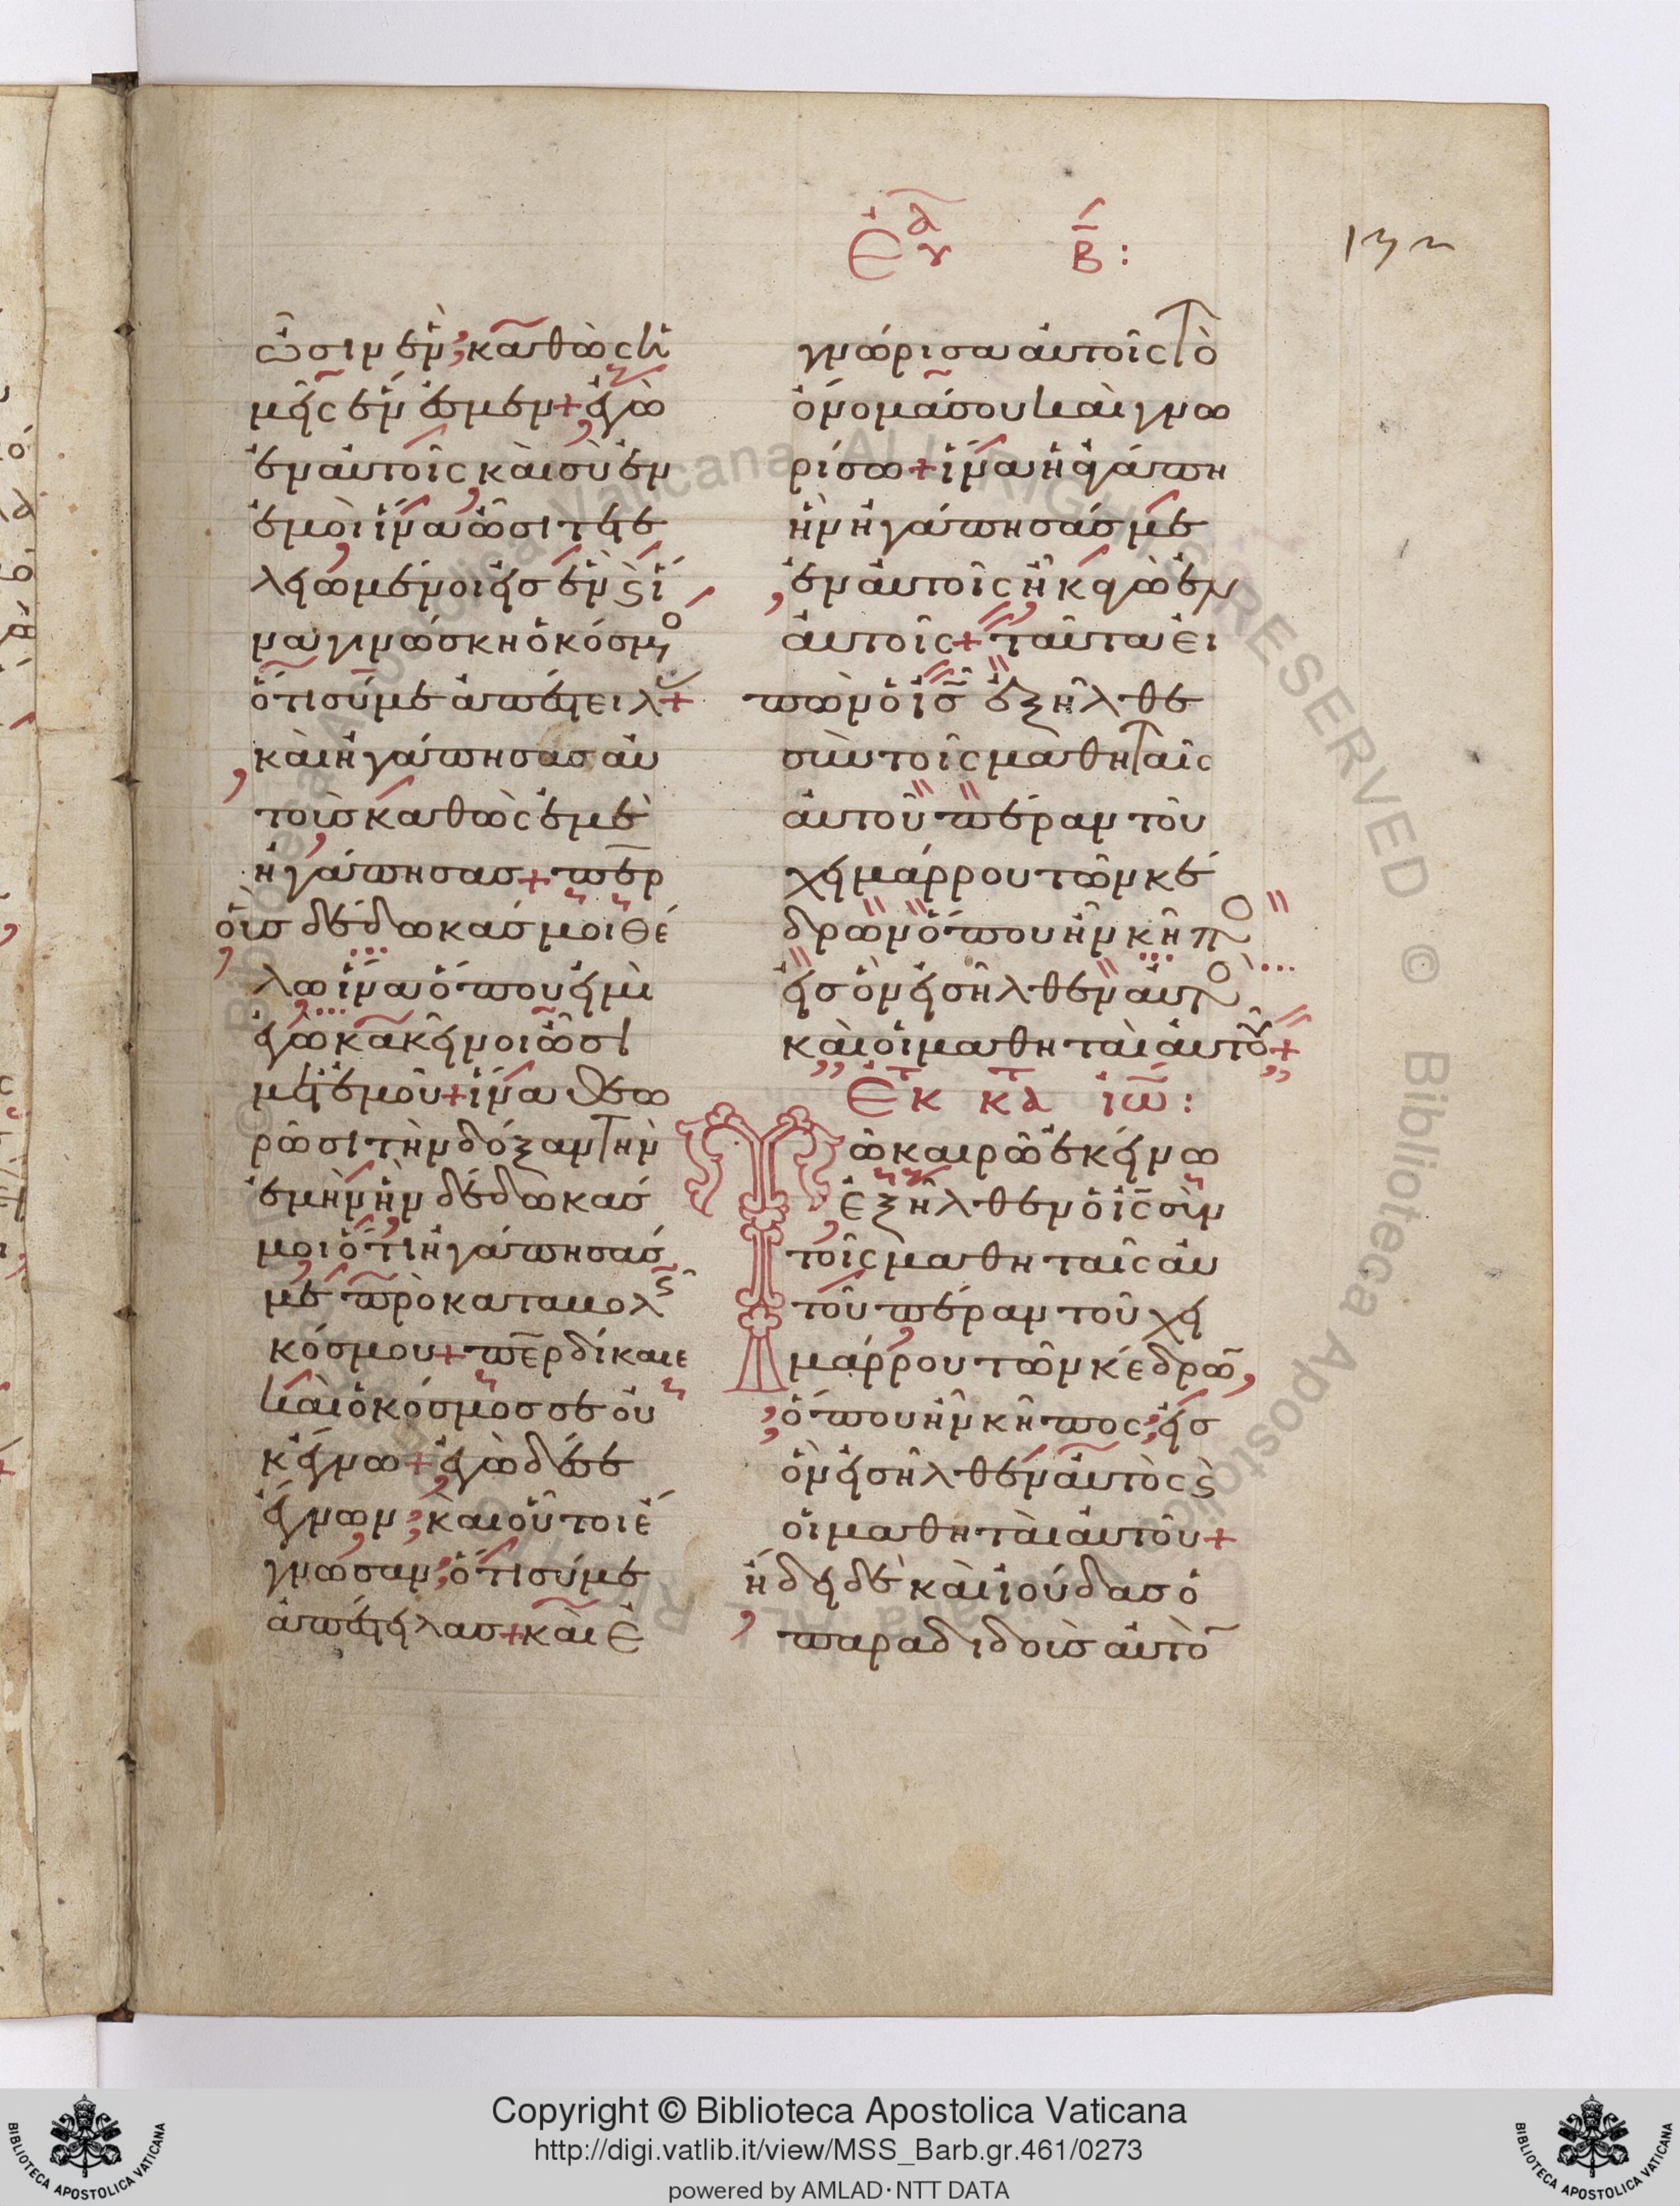 Εὐα Β:
132
ὦσιν ἓν· καθὼς ἡ
μεῖς ἕν ἐσμεν + ἐγὼ
ἐν αὐτοῖς καὶ σὺ ἐν
ἐμοὶ ἵνα ὦσι τετε
λεωμένοι εἰς ἓν ϗ ἵ
να γινώσκη ὁ κόσμο
ὅτι σύ με ἀπέστειλ +
καὶ ἠγάπησας αὐ
τοὺς καθὼς ἐμὲ
ἠγάπησας + περ
οὓς δέδωκάς μοι θέ
λω ἵνα ὅπου εἰμὶ
ἐγὼ κακεῖνοι ὦσι
μετ ἐμοῦ + ἵνα θεω
ρῶσι τὴν δόξαν τὴν
ἐμὴν ἣν δέδωκάς
μοι ὅτι ἠγάπησάς
με πρὸ καταβολ
κόσμου + περ δίκαιε
καὶ ὁ κόσμος σε οὐ
κ ἔγνω + ἐγὼ δέ σε
ἔγνων· καὶ οὗτοι ἔ
γνωσαν· ὅτι σύ με
ἀπέστειλας + καὶ ἐ
γνώρισα αὐτοῖς τὸ
ὄνομά σου καὶ γνω
ρίσω + ἵνα ἡ ἀγάπη
ἣν ἠγάπησάς με
ἐν αὐτοῖς ἦ κἀγὼ ἐν
αὐτοῖς + ταῦτα εἰ
πὼν ὁ ις ἐξῆλθε
σὺν τοῖς μαθηταῖς
αὐτοῦ πέραν τοῦ
χειμάρρου τῶν κέ
δρων ὅπου ἦν κῆπο
εἰς ὃν εἰσῆλθεν αυτο
καὶ οἱ μαθηταὶ αὐτοῦ +
Ἐκ τ κτα ἰω:
Τῶ καιρῶ ἐκείνω
ἐξῆλθεν ὁ ις σὺν
τοῖς μαθηταῖς αὐ
τοῦ πέραν τοῦ χει
μάρρου τῶν κέδρω
ὅπου ἦν κῆπος· εἰς
ὃν εἰσῆλθεν αὐτὸς ϗ
οἱ μαθηταὶ αὐτοῦ +
ἤδει δὲ καὶ ἰούδας ὁ
παραδιδοὺς αὐτὸ
Copyright © Biblioteca Apostolica Vaticana
http://digi.vatlib.it/view/MSS_Barb.gr.461/0273
powered by AMLAD·NTT DATA
BIBLIOTECA APOSTOLICA VATICANA
BIBLIOTECA APOSTOLICA VATICANA